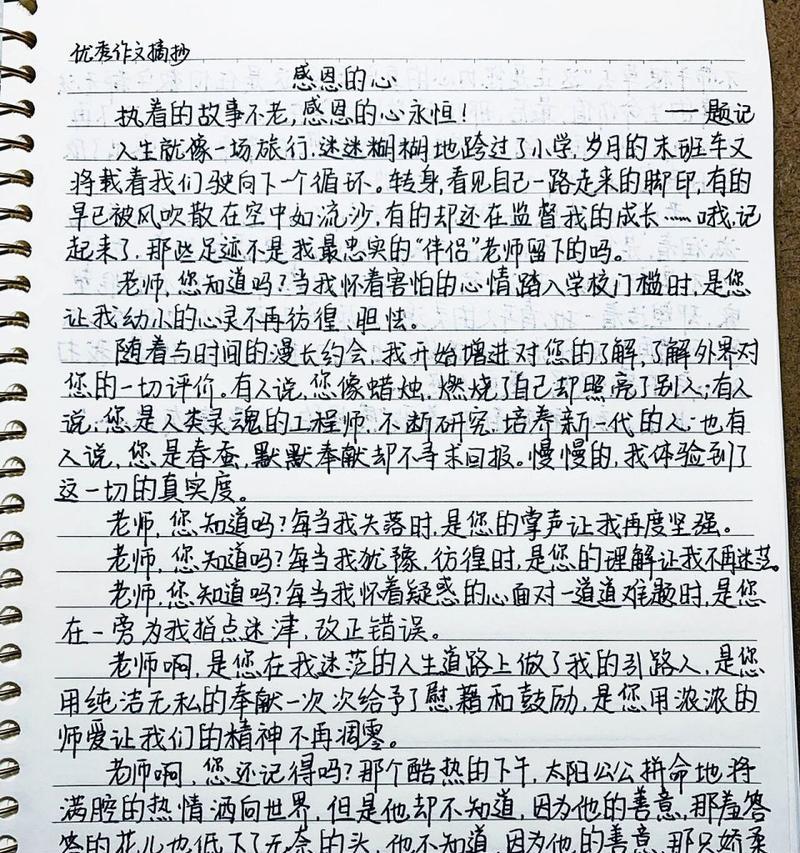 优秀作文摘抄
感恩的心
执着的故事不老,感恩的心永恒! ——题记
人生就像一场旅行,迷迷糊糊地跨过了小学,岁月的末班车又
将载着我们驶向下一个循环。转身,看见自己一路走来的脚印,有的
早已被风吹散在空中如流沙,有的却还在监督我的成长……哦,记
起来了,那些足迹不是我最忠实的“伴侣”老师留下的吗。
老师,您知道吗?当我怀着害怕的心情踏入学校门槛时,是您
让我幼小的心灵不再彷徨、胆怯。
随着与时间的漫长约会,我开始增进对您的了解,了解外界对
您的一切评价。有人说,您像蜡烛,燃烧了自己却照亮了别人;有人
说,您是人类灵魂的工程师,不断研究,培养新一代的人;也有
人说,您是春蚕,默默奉献却不寻求回报。慢慢的,我体验到了
这一切的真实度。
老师,您知道吗?每当我失落时,是您的掌声让我再度坚强。
老师,您知道吗?每当我犹豫,彷徨时,是您的理解让我不再迷茫。
老师,您知道吗?每当我怀着疑惑的心面对一道道难题时,是您
在一旁为我指点迷津,改正错误。
老师啊,是您在我迷茫的人生道路上做了我的引路人,是您
用纯洁无私的奉献一次次给予了慰藉和鼓励,是您用浓浓的
师爱让我们的精神不再凋零。
老师啊,您还记得吗?那个酷热的下午,太阳公公拼命地将
满腔的热情洒向世界,但是他却不知道,因为他的善意,那羞答
答的花儿也低下了无奈的头,他不知道,因为他的善意,那只娇柔